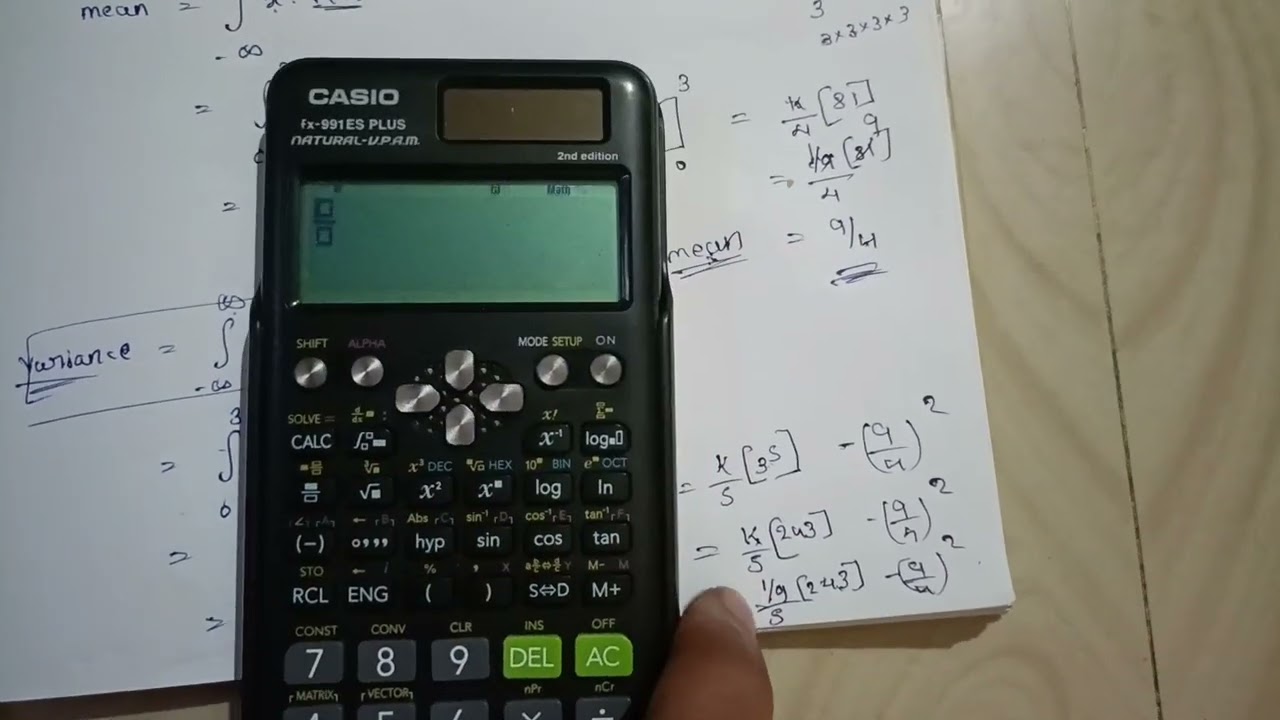 mean = ∫
- ∞
3
3×3×3×3
= ∫ ] 3 0 = k/4 [81]
= = 1/9 /4 [81] 9
mean = 9/4
∞
Variance = ∫
-∞
3
= ∫ = k/5 [3^5] - (9/4)^2
0
= = k/5 [243] - (9/4)^2
= 1/9 /5 [243] - (9/4)^2
CASIO
fx-991ES PLUS
NATURAL-V.P.A.M.
2nd edition
Math
SHIFT ALPHA MODE SETUP ON
SOLVE = d/dx : x! Σ
CALC ∫ x⁻¹ log
³√ x³ DEC √ HEX 10 BIN e OCT
√ x² x log ln
∠ A ← B Abs C sin⁻¹ D cos⁻¹ E tan⁻¹ F
(−) °,,, hyp sin cos tan
STO ← i % , X a b/c⇔d/c Y M- M
RCL ENG ( ) S⇔D M+
CONST CONV CLR INS OFF
7 8 9 DEL AC
MATRIX VECTOR nPr nCr